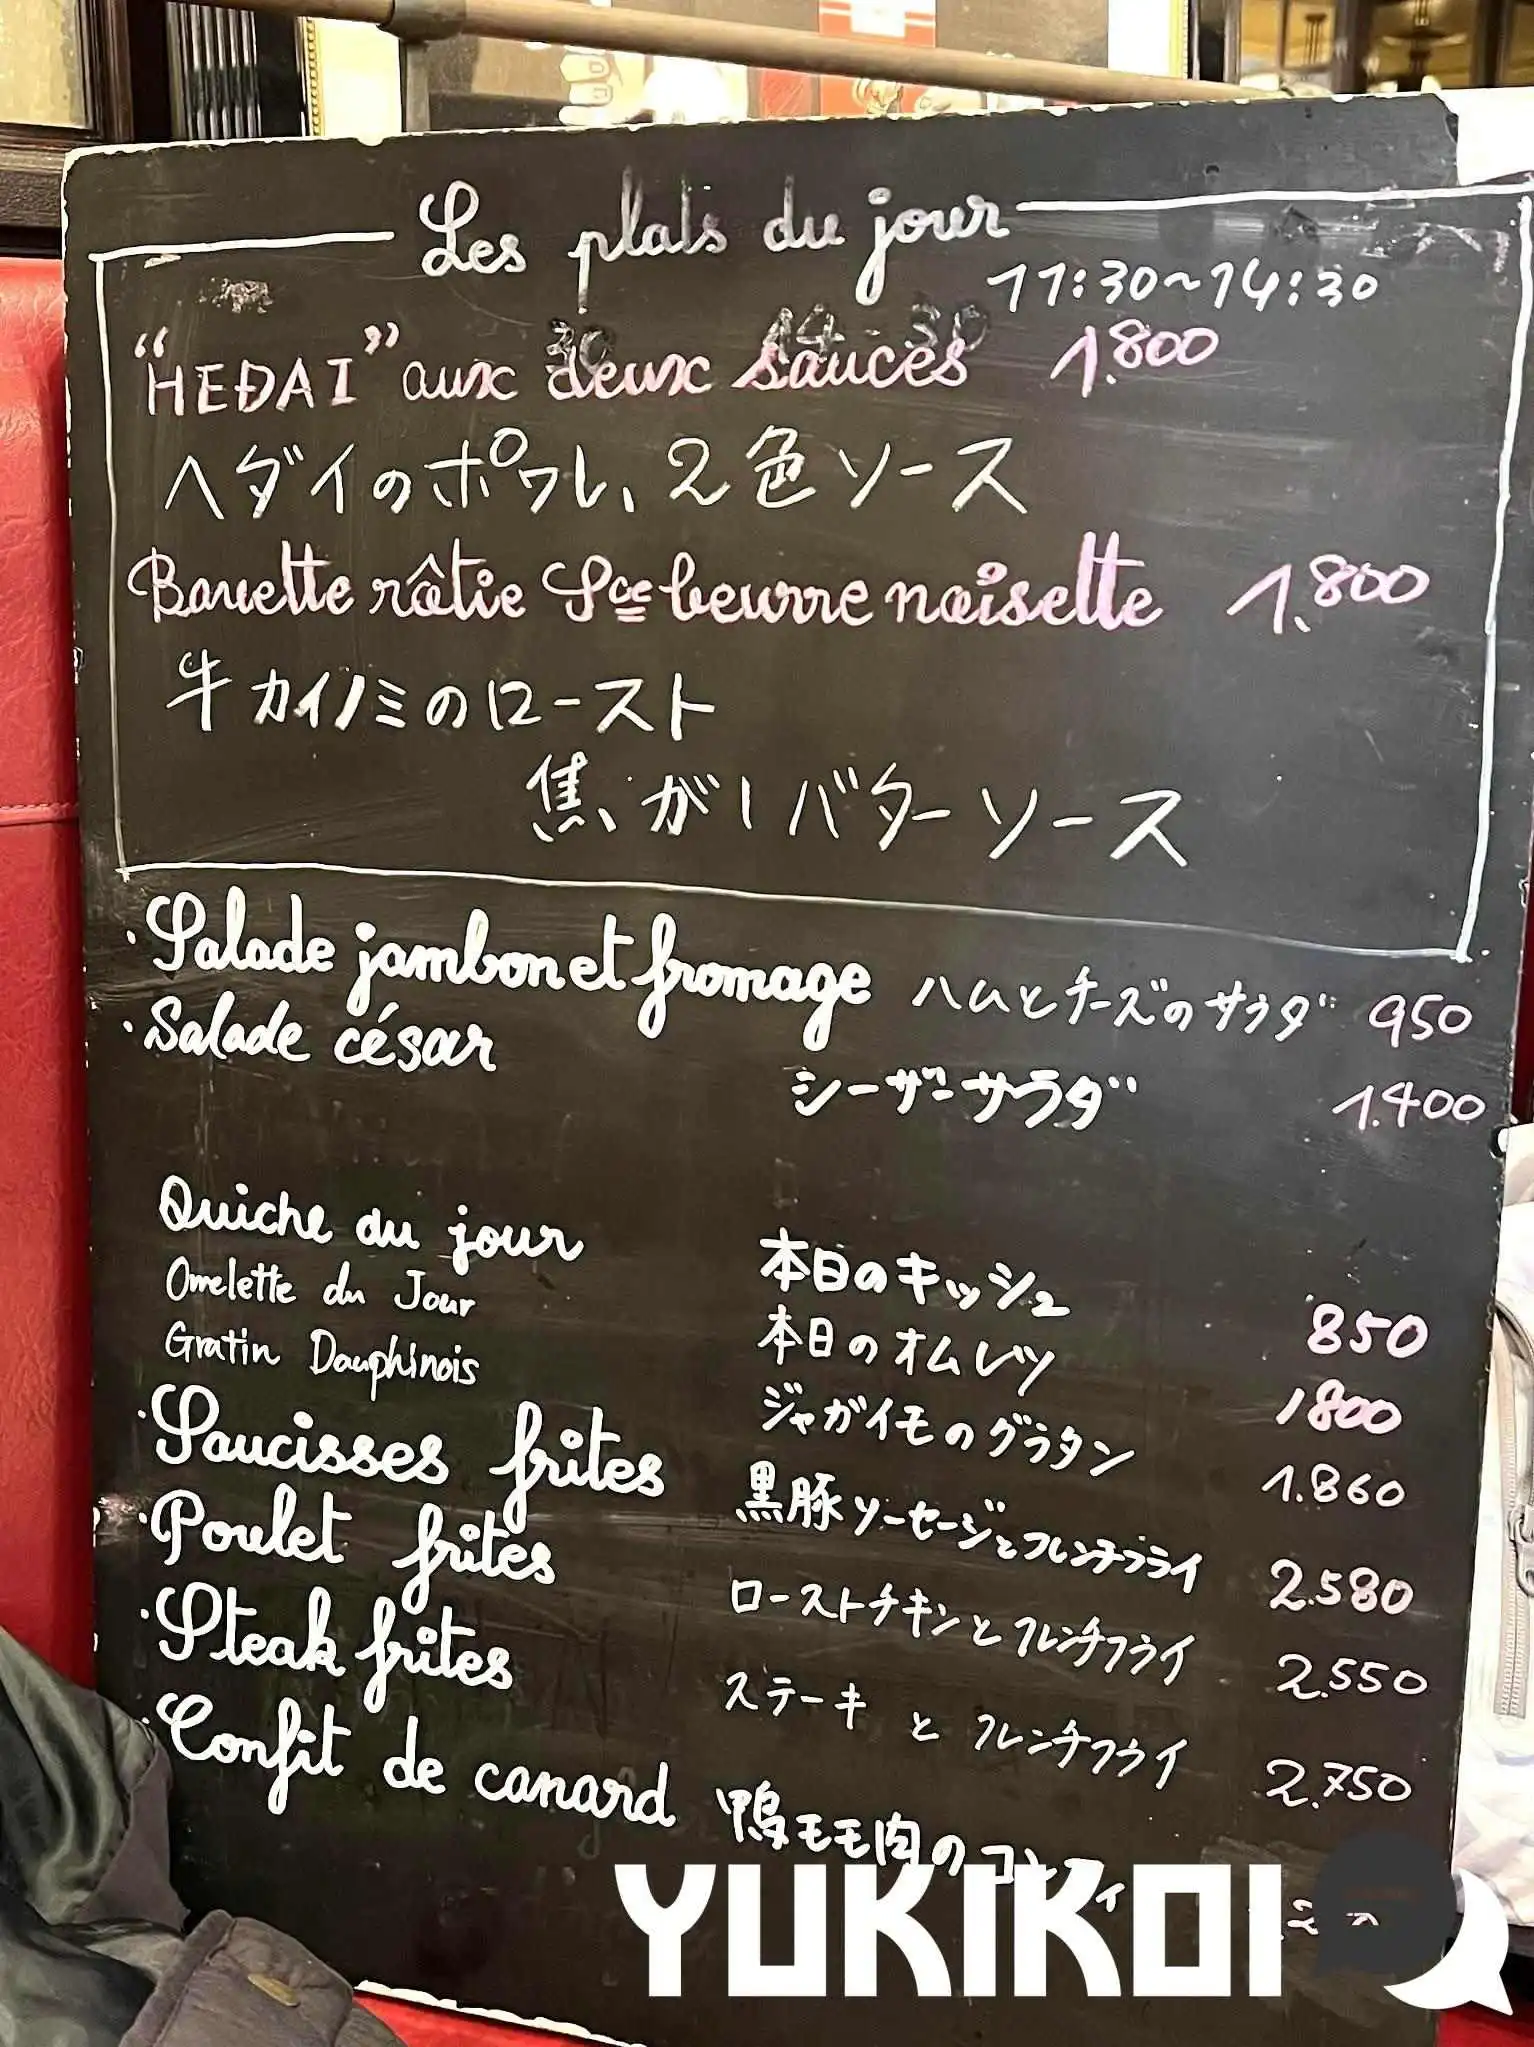 Les plats du jour
11:30~14:30
"HEDAI" aux deux sauces 1.800
ヘダイのポワレ、2色ソース
Bavette rôtie Sce beurre noisette 1.800
牛カイノミのロースト
焦がしバターソース
・Salade jambon et fromage ハムとチーズのサラダ 950
・Salade césar シーザーサラダ 1.400
Quiche du jour 本日のキッシュ 850
Omelette du Jour 本日のオムレツ 1800
Gratin Dauphinois ジャガイモのグラタン 1.860
・Saucisses frites 黒豚ソーセージとフレンチフライ 2.580
・Poulet frites ローストチキンとフレンチフライ 2.550
・Steak frites ステーキとフレンチフライ 2.750
・Confit de canard 鴨モモ肉のコンフィ
YUKIKOI